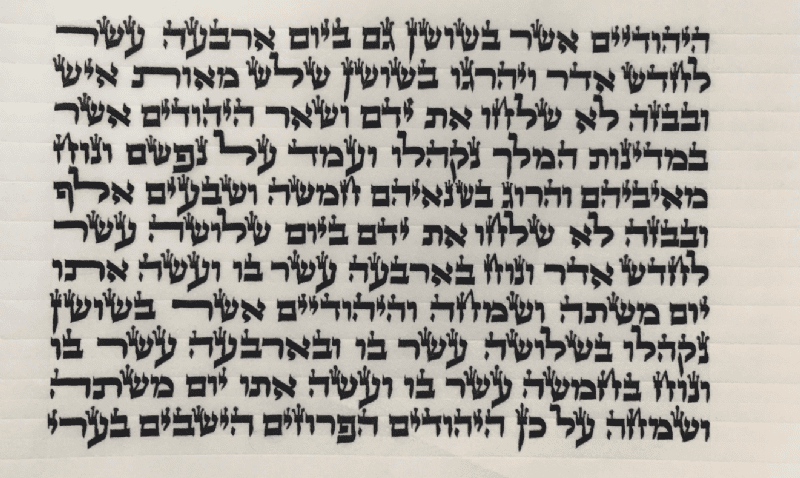 היהודיים אשר בשושן גם ביום ארבעה עשר
לחדש אדר ויהרגו בשושן שלש מאות איש
ובבזה לא שלחו את ידם ושאר היהודים אשר
במדינות המלך נקהלו ועמד על נפשם ונוח
מאיביהם והרוג בשנאיהם חמשה ושבעים אלף
ובבזה לא שלחו את ידם ביום שלושה עשר
לחדש אדר ונוח בארבעה עשר בו ועשה אתו
יום משתה ושמחה והיהודיים אשר בשושן
נקהלו בשלושה עשר בו ובארבעה עשר בו
ונוח בחמשה עשר בו ועשה אתו יום משתה
ושמחה על כן היהודים הפרוזים הישבים בערי